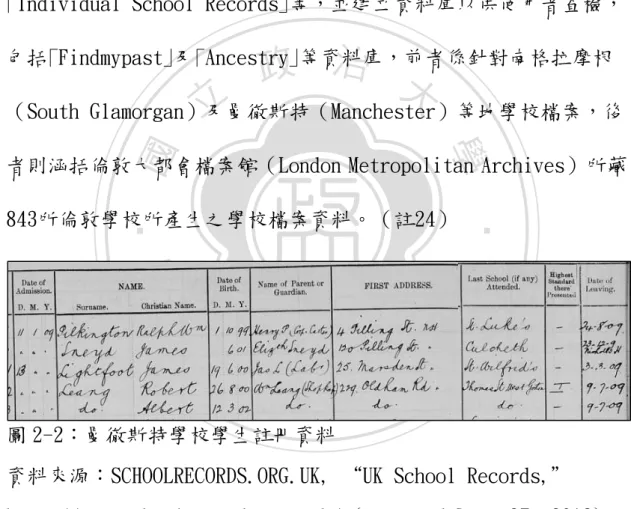 「Individual School Records」等，並建立資料庫以供使用者查檢，
包括「Findmypast」及「Ancestry」等資料庫，前者係針對南格拉摩根
（South Glamorgan）及曼徹斯特（Manchester）等地學校檔案，後
者則涵括倫敦大都會檔案館（London Metropolitan Archives）所藏
843所倫敦學校所產生之學校檔案資料。（註24）
國立政治大學
Date of Admission. NAME. Date of Birth. Name of Parent or Guardian. FIRST ADDRESS. Last School (if any) Attended. Highest Standard there Presented Date of Leaving.
D. M. Y. Surname. Christian Name. D. M. Y.
11 1 09 Pilkington Ralph Wm 1 10 99 Henry P. 4 Pilling St. St. Luke's – 24-8-09
" " " Sneyd James 6 01 Elizth Sneyd 130 Pilling St. " Culcheth –
13 " " Lightfoot James 19 6 00 Jas L (Lab) 25. Marsden St. St. Wilfred's – 3-3-09
" " " Leang Robert 26 8 00 Wm Leang 229. Oldham Rd. I 9-7-09
" " " do. Albert 12 3 02 do. do. do – 9-7-09
圖 2-2：曼徹斯特學校學生註冊資料
資料來源：SCHOOLRECORDS.ORG.UK, “UK School Records,”